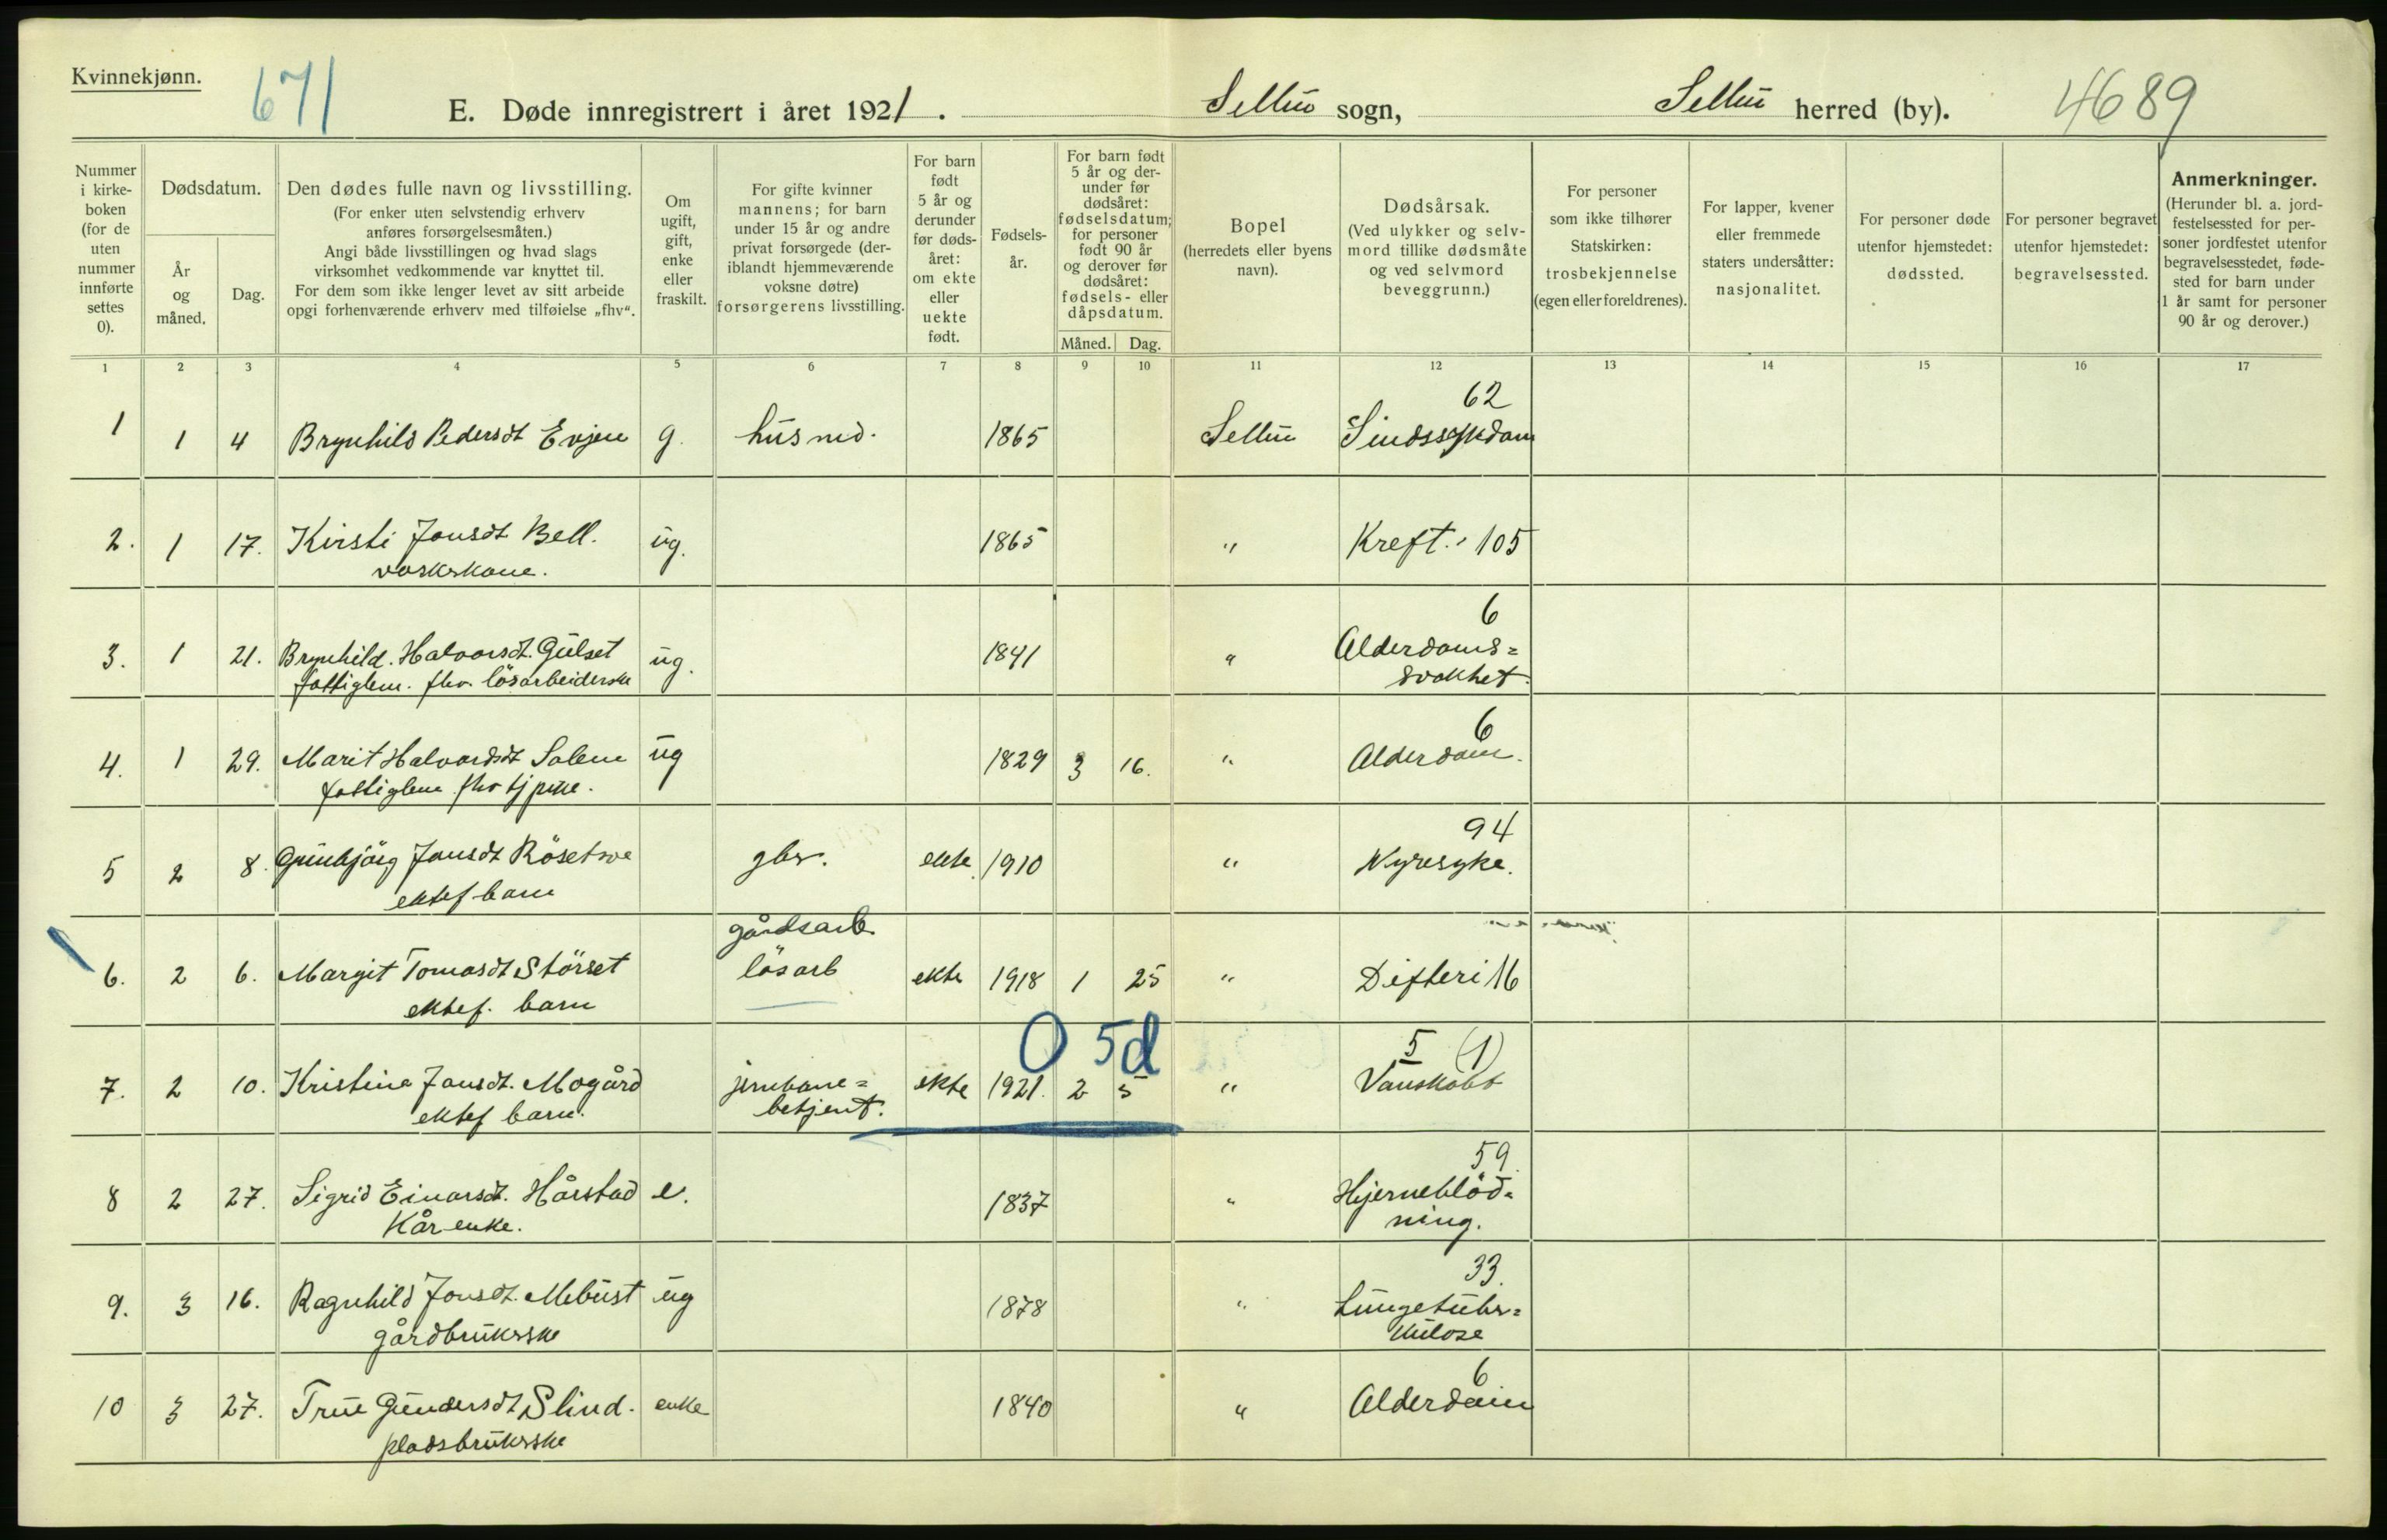 Kvinnekjønn.
671
E. Døde innregistrert i året 1921.
Selbu sogn,
Selbu herred (by).
4689
Nummer i kirke- boken (for de uten nummer innførte settes 0).
Dødsdatum.
År og måned.
Dag.
Den dødes fulle navn og livsstilling.
(For enker uten selvstendig erhverv
anføres forsørgelsesmåten.)
Angi både livsstillingen og hvad slags
virksomhet vedkommende var knyttet til.
For dem som ikke lenger levet av sitt arbeide
opgi forhenværende erhverv med tilføielse „fhv“.
Om ugift, gift, enke eller fraskilt.
For gifte kvinner
mannens; for barn
under 15 år og andre
privat forsørgede (der-
iblandt hjemmeværende
voksne døtre)
forsørgerens livsstilling.
For barn født 5 år og derunder før døds- året: om ekte eller uekte født.
Fødsels- år.
For barn født
5 år og der-
under før
dødsåret:
fødselsdatum;
for personer
født 90 år
og derover før
dødsåret:
fødsels- eller
dåpsdatum.
Måned. Dag.
Bopel
(herredets eller byens
navn).
Dødsårsak.
(Ved ulykker og selv-
mord tillike dødsmåte
og ved selvmord
beveggrunn.)
For personer
som ikke tilhører
Statskirken:
trosbekjennelse
(egen eller foreldrenes).
For lapper, kvener
eller fremmede
staters undersåtter:
nasjonalitet.
For personer døde
utenfor hjemstedet:
dødssted.
For personer begravet
utenfor hjemstedet:
begravelsessted.
Anmerkninger.
(Herunder bl. a. jord-
festelsessted for per-
soner jordfestet utenfor
begravelsesstedet, føde-
sted for barn under
1 år samt for personer
90 år og derover.)
1 2 3 4 5 6 7 8 9 10 11 12 13 14 15 16 17
62
1 1 4 Brynhild Pedersdt Evjen g. husmd. 1865 Selbu Sindssykdom
2. 1 17. Kirsti Jonsdt Bell. ug. 1865 " Kreft. 105
vaskekone.
6
3. 1 21. Brynhild. Halvorsdt. Gulset ug. 1841 " Alderdoms=
fattiglem. fhv. løsarbeiderske svakhet.
6
4. 1 29. Marit Halvardsdt Salem ug 1829 3 16. " Alderdom.
fattiglem fhv tjpike.
94
5 2 8. Gunbjörg Jonsdt Rösetvoe gbr. ekte 1910 " Nyresyke.
ektef barn
gårdsarb
6. 2 6. Margit Tomasdt Störset lösarb ekte 1918 1 25 " Difteri 16
ektef. barn
0 5d
5 (1)
7. 2 10. Kristine Jonsdt. Mogård jernbane= ekte 1921. 2 5 " Vanskabt
ektef barn. betjent.
59.
8 2 27. Sigrid Einarsdt. Hårstad e. 1837 " Hjerneblöd=
Kårenke. ning.
33.
9. 3 16. Ragnhild Jonsdt. Mebust ug 1878 " Lungetuber=
gårdbrukerske kulose
6
10 3 27. True Gundersdt Slind. enke 1840 " Alderdom
pladsbrukerske